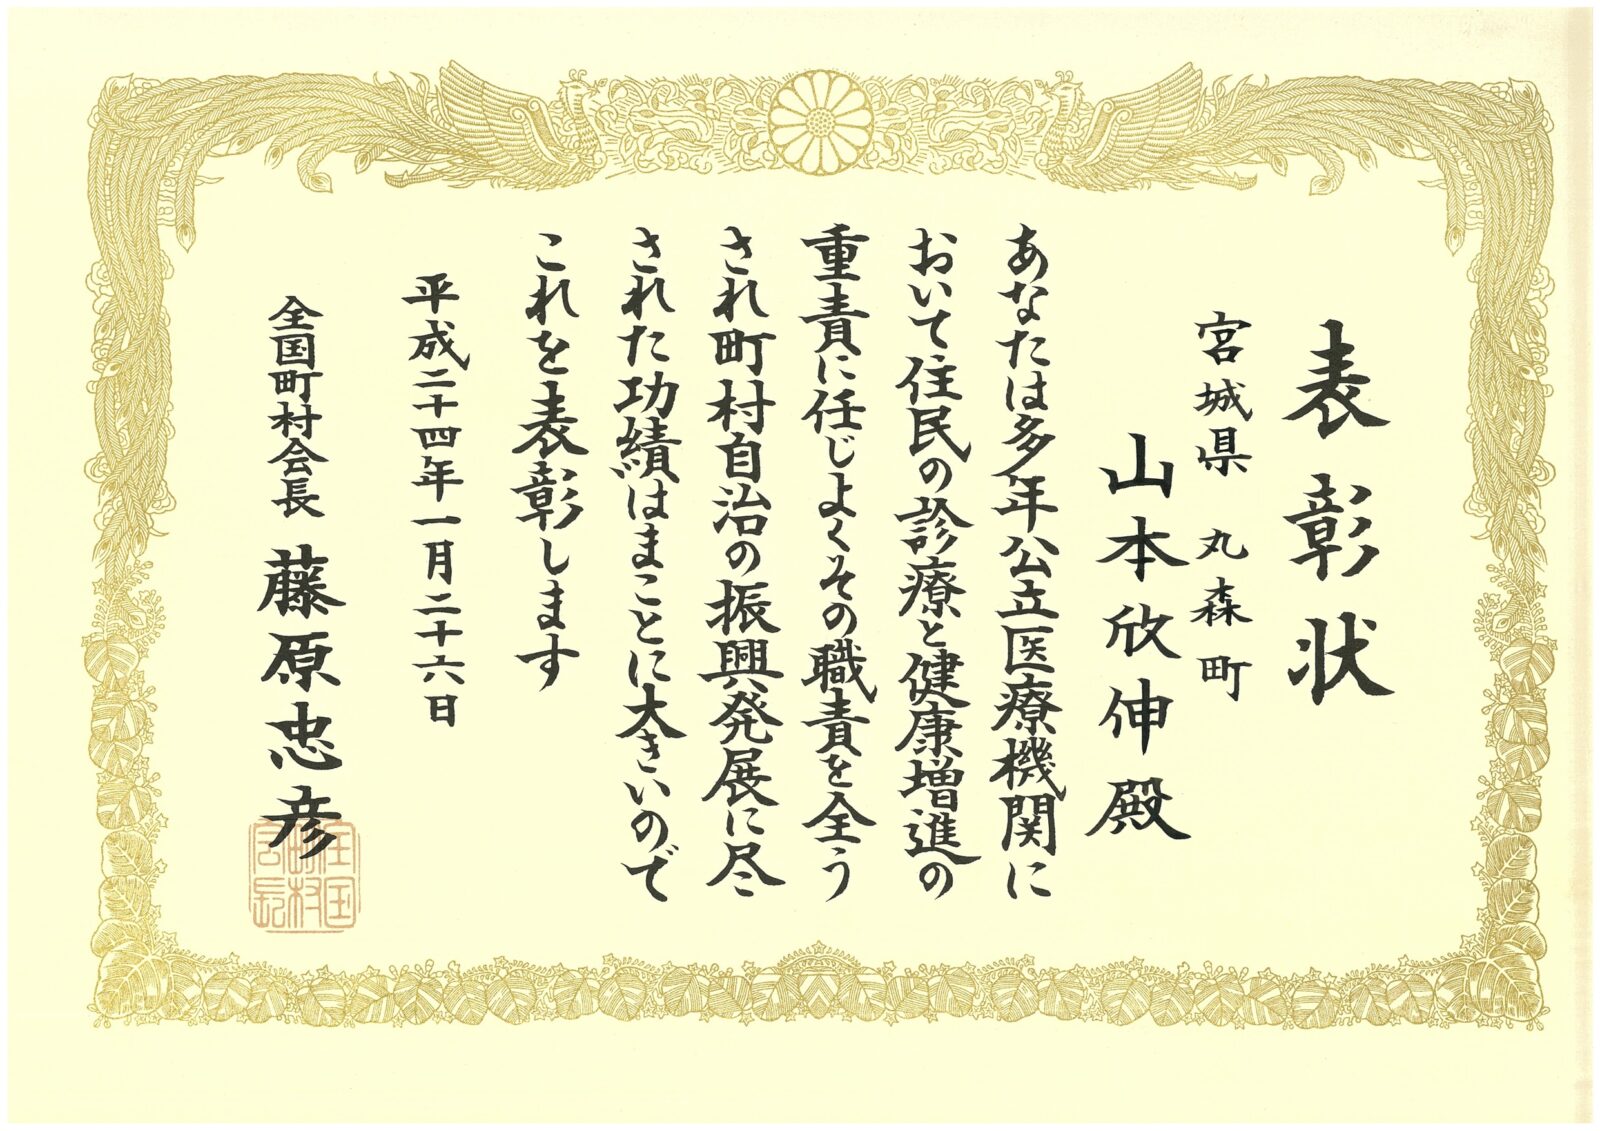 表彰状
宮城県 丸森町
山本欣伸殿
あなたは多年公立医療機関に
おいて住民の診療と健康増進の
重責に任じよくその職責を全う
され町村自治の振興発展に尽く
された功績はまことに大きいので
これを表彰します
平成二十四年一月二十六日
全国町村会長 藤原忠彦
全国
町村
会長